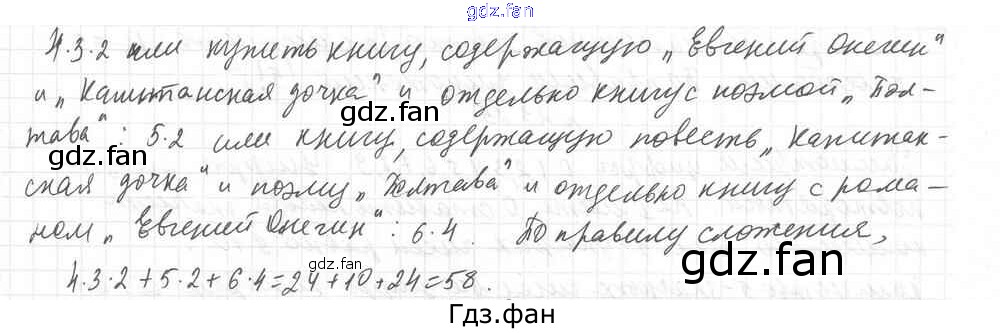 gdz.fan
4·3·2 или купить книгу, содержащую „Евгений Онегин“
и „Капитанская дочка“ и отдельно книгу с поэмой „Пол-
gdz.fan
тава“: 5·2 или книгу, содержащую повесть „Капитан-
ская дочка“ и поэму „Полтава“ и отдельно книгу с рома-
gdz.fan
ном „Евгений Онегин“: 6·4. По правилу сложения,
gdz.fan
gdz.fan
4·3·2+5·2+6·4=24+10+24=58.
Гдз.фан